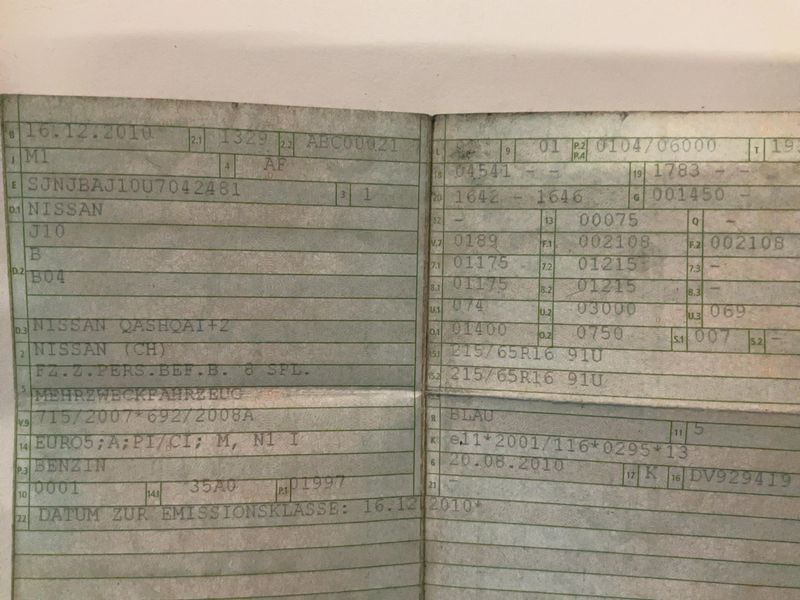 B 16.12.2010 2.1 1329 2.2 ABC00021
J M1 4 AF
E SJNJBAJ10U7042481 3 1
D.1 NISSAN
J10
B
D.2 B04
D.3 NISSAN QASHQAI+2
2 NISSAN (CH)
FZ.Z.PERS.BEF.B. 8 SPL.
5 MEHRZWECKFAHRZEUG
V.9 715/2007*692/2008A
14 EURO5;A;PI/CI; M, N1 I
P.3 BENZIN
10 0001 14.1 35A0 P.1 01997
22 DATUM ZUR EMISSIONSKLASSE: 16.12.2010*
L 9 01 P.2 P.4 0104/06000 T
18 04541 - - 19 1783 - -
20 1642 - 1646 G 001450 -
12 - 13 00075 Q -
V.7 0189 F.1 002108 F.2 002108
7.1 01175 7.2 01215 7.3 -
8.1 01175 8.2 01215 8.3 -
U.1 074 U.2 03000 U.3 069
O.1 01400 O.2 0750 S.1 007 S.2 -
15.1 215/65R16 91U
15.2 215/65R16 91U
R BLAU 11 5
K e11*2001/116*0295*13
6 20.08.2010 17 K 16 DV929419
21 -